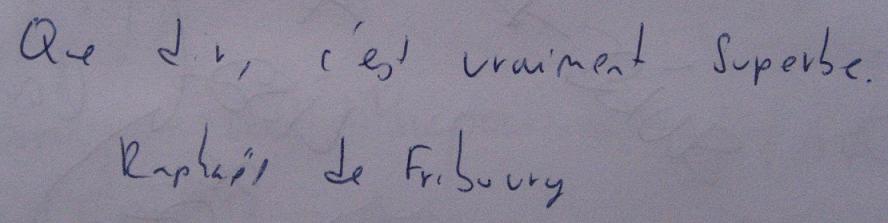 Que dir, c'est vraiment superbe.
Raphaël de Fribourg